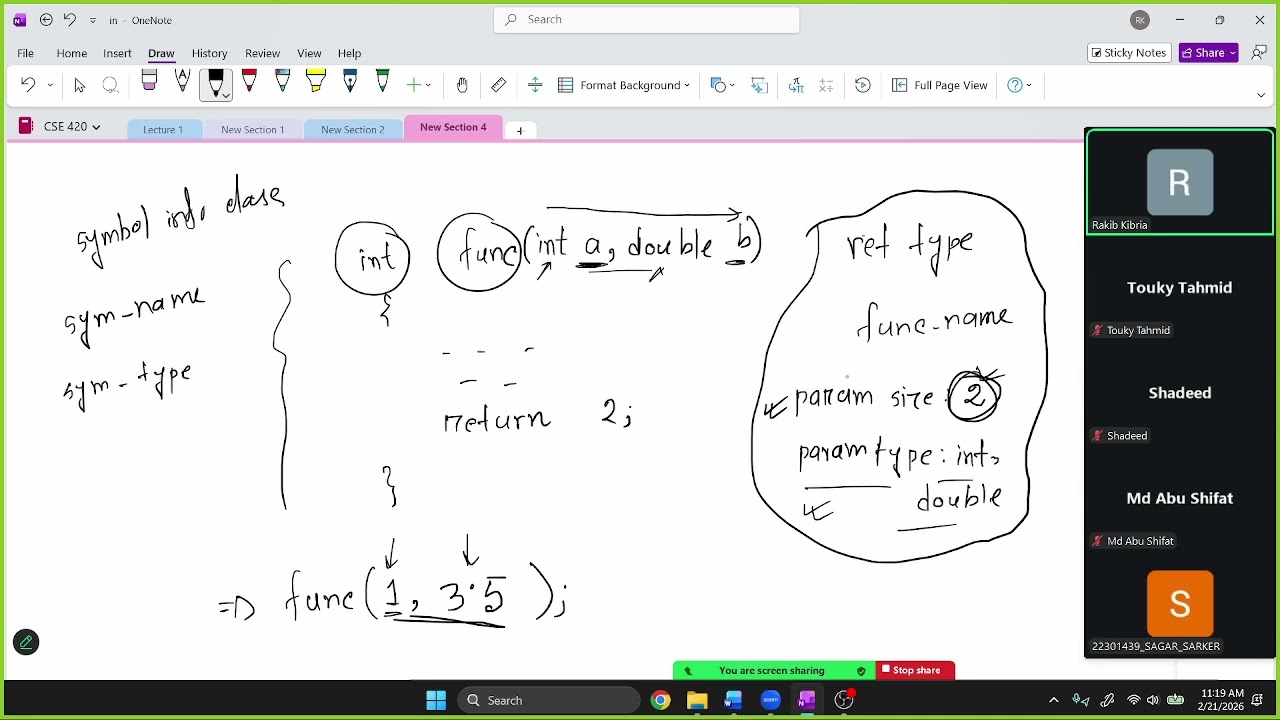 in - OneNote
Search
RK
File Home Insert Draw History Review View Help
Sticky Notes
Share
Format Background
Full Page View
CSE 420
Lecture 1
New Section 1
New Section 2
New Section 4
symbol info class
sym-name
sym-type
int func(int a, double b)
{
return 2;
}
=> func(1, 3.5);
ret type
func-name
param size: 2
param type: int,
double
R
Rakib Kibria
Touky Tahmid
Touky Tahmid
Shadeed
Shadeed
Md Abu Shifat
Md Abu Shifat
S
22301439_SAGAR_SARKER
You are screen sharing
Stop share
Search
11:19 AM
2/21/2026